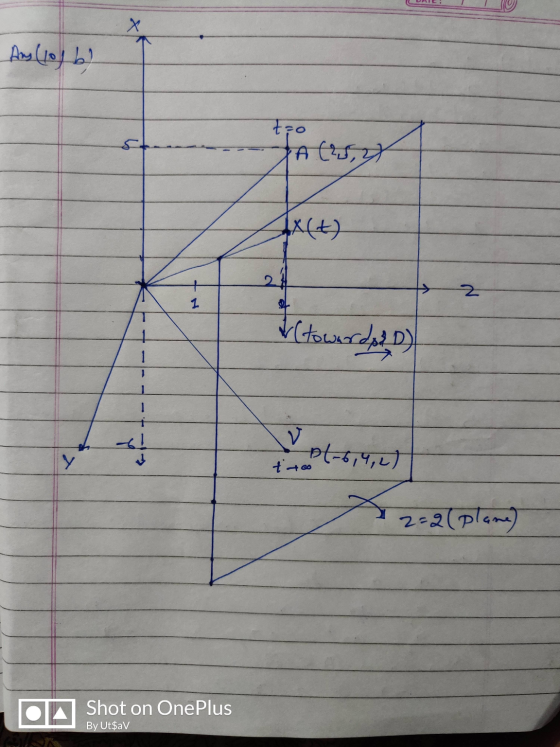 DATE:
X
Ans(10, b)
t=0
5
A (25, 2)
X(t)
2
1
2
Z
V (towards D)
-6
V
Y
t→∞
D(-6,4,2)
z=2 (Plane)
Shot on OnePlus
By Ut$aV